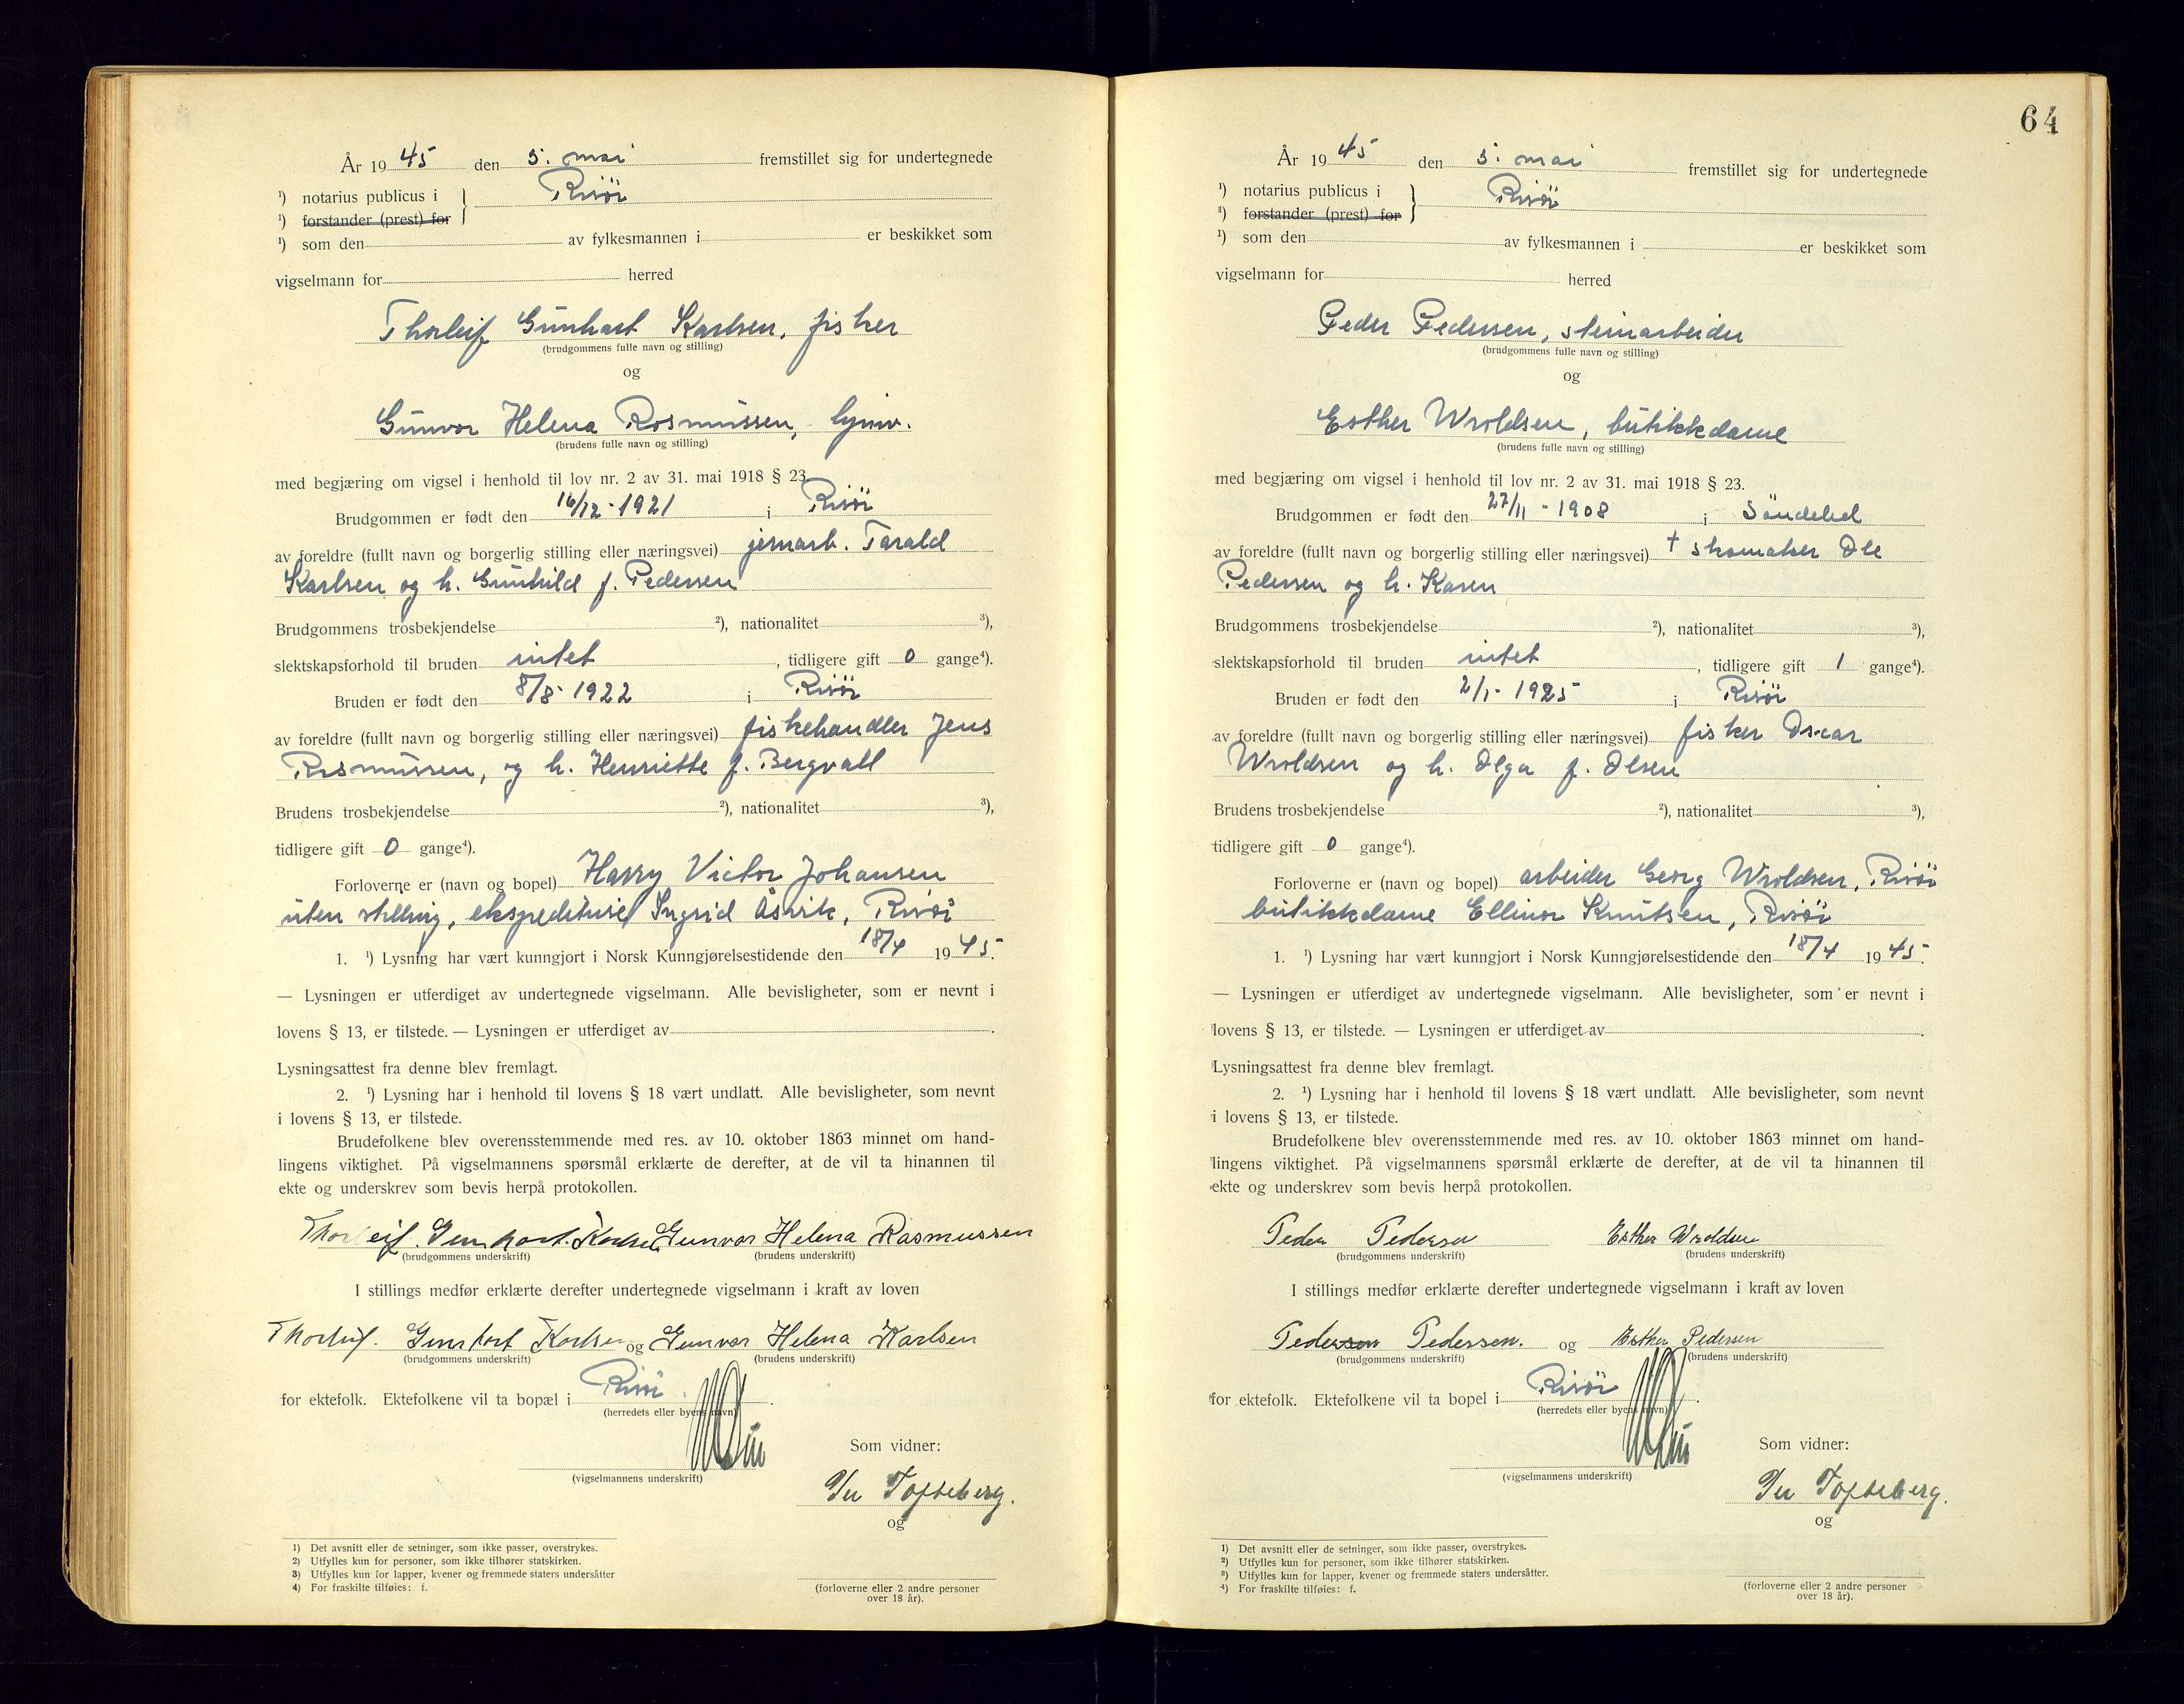 År 1945 den 5. mai fremstillet sig for undertegnede
¹) notarius publicus i } Risör
¹) forstander (prest) for
¹) som den av fylkesmannen i er beskikket som
vigselmann for herred
Thorleif Gunhart Karlsen, fisker
(brudgommens fulle navn og stilling)
og
Gunvor Helena Rasmussen,
(brudens fulle navn og stilling)
med begjæring om vigsel i henhold til lov nr. 2 av 31. mai 1918 § 23.
Brudgommen er født den 16/12-1921 i Risör
av foreldre (fullt navn og borgerlig stilling eller næringsvei) jernarb. Tarald
Karlsen og h. Gunhild f. Pedersen
Brudgommens trosbekjendelse ²), nationalitet ³),
slektskapsforhold til bruden intet, tidligere gift 0 gange⁴).
Bruden er født den 8/8-1922 i Risör
av foreldre (fullt navn og borgerlig stilling eller næringsvei) fiskehandler Jens
Rasmussen, og h. Henriette f. Bergvall
Brudens trosbekjendelse ²), nationalitet ³),
tidligere gift 0 gange⁴).
Forloverne er (navn og bopel) Harry Victor Johansen
uten stilling, ekspeditrise Ingrid Åsvik, Risör
1. ¹) Lysning har vært kunngjort i Norsk Kunngjørelsestidende den 18/4 1945.
— Lysningen er utferdiget av undertegnede vigselmann. Alle bevisligheter, som er nevnt i
lovens § 13, er tilstede. — Lysningen er utferdiget av .
Lysningsattest fra denne blev fremlagt.
2. ¹) Lysning har i henhold til lovens § 18 vært undlatt. Alle bevisligheter, som nevnt
i lovens § 13, er tilstede.
Brudefolkene blev overensstemmende med res. av 10. oktober 1863 minnet om hand-
lingens viktighet. På vigselmannens spørsmål erklærte de derefter, at de vil ta hinannen til
ekte og underskrev som bevis herpå protokollen.
Thorleif Gunhart Karlsen Gunvor Helena Rasmussen
(brudgommens underskrift) (brudens underskrift)
I stillings medfør erklærte derefter undertegnede vigselmann i kraft av loven
Thorleif Gunhart Karlsen og Gunvor Helena Karlsen
(brudgommens underskrift) (brudens underskrift)
for ektefolk. Ektefolkene vil ta bopæl i Risör.
(herredets eller byens navn)
Som vidner:
(vigselmannens underskrift)
Tofteberg.
og
1) Det avsnitt eller de setninger, som ikke passer, overstrykes.
2) Utfylles kun for personer, som ikke tilhører statskirken.
3) Utfylles kun for lapper, kvener og fremmede staters undersåtter
4) For fraskilte tilføies: f.
(forloverne eller 2 andre personer
over 18 år).
64
År 1945 den 5. mai fremstillet sig for undertegnede
¹) notarius publicus i } Risör
¹) forstander (prest) for
¹) som den av fylkesmannen i er beskikket som
vigselmann for herred
Peder Pedersen, steinarbeider
(brudgommens fulle navn og stilling)
og
Esther Wroldsen, butikkdame
(brudens fulle navn og stilling)
med begjæring om vigsel i henhold til lov nr. 2 av 31. mai 1918 § 23.
Brudgommen er født den 27/11-1908 i Söndeled
av foreldre (fullt navn og borgerlig stilling eller næringsvei) † skomaker Ole
Pedersen og h. Karen
Brudgommens trosbekjendelse ²), nationalitet ³),
slektskapsforhold til bruden intet, tidligere gift 1 gange⁴).
Bruden er født den 2/1-1925 i Risör
av foreldre (fullt navn og borgerlig stilling eller næringsvei) fisker Oscar
Wroldsen og h. Olga f. Olsen
Brudens trosbekjendelse ²), nationalitet ³),
tidligere gift 0 gange⁴).
Forloverne er (navn og bopel) arbeider Georg Wroldsen, Risör
butikkdame Ellinor Knutsen, Risör
1. ¹) Lysning har vært kunngjort i Norsk Kunngjørelsestidende den 18/4 1945.
— Lysningen er utferdiget av undertegnede vigselmann. Alle bevisligheter, som er nevnt i
lovens § 13, er tilstede. — Lysningen er utferdiget av .
Lysningsattest fra denne blev fremlagt.
2. ¹) Lysning har i henhold til lovens § 18 vært undlatt. Alle bevisligheter, som nevnt
i lovens § 13, er tilstede.
Brudefolkene blev overensstemmende med res. av 10. oktober 1863 minnet om hand-
lingens viktighet. På vigselmannens spørsmål erklærte de derefter, at de vil ta hinannen til
ekte og underskrev som bevis herpå protokollen.
Peder Pedersen Esther Wroldsen
(brudgommens underskrift) (brudens underskrift)
I stillings medfør erklærte derefter undertegnede vigselmann i kraft av loven
Pedersen Pedersen. og Esther Pedersen
(brudgommens underskrift) (brudens underskrift)
for ektefolk. Ektefolkene vil ta bopel i Risör.
(herredets eller byens navn)
Som vidner:
(vigselmannens underskrift)
Tofteberg.
og
1) Det avsnitt eller de setninger, som ikke passer, overstrykes.
2) Utfylles kun for personer, som ikke tilhører statskirken.
3) Utfylles kun for lapper, kvener og fremmede staters undersåtter.
4) For fraskilte tilføies: f.
(forloverne eller 2 andre personer
over 18 år).